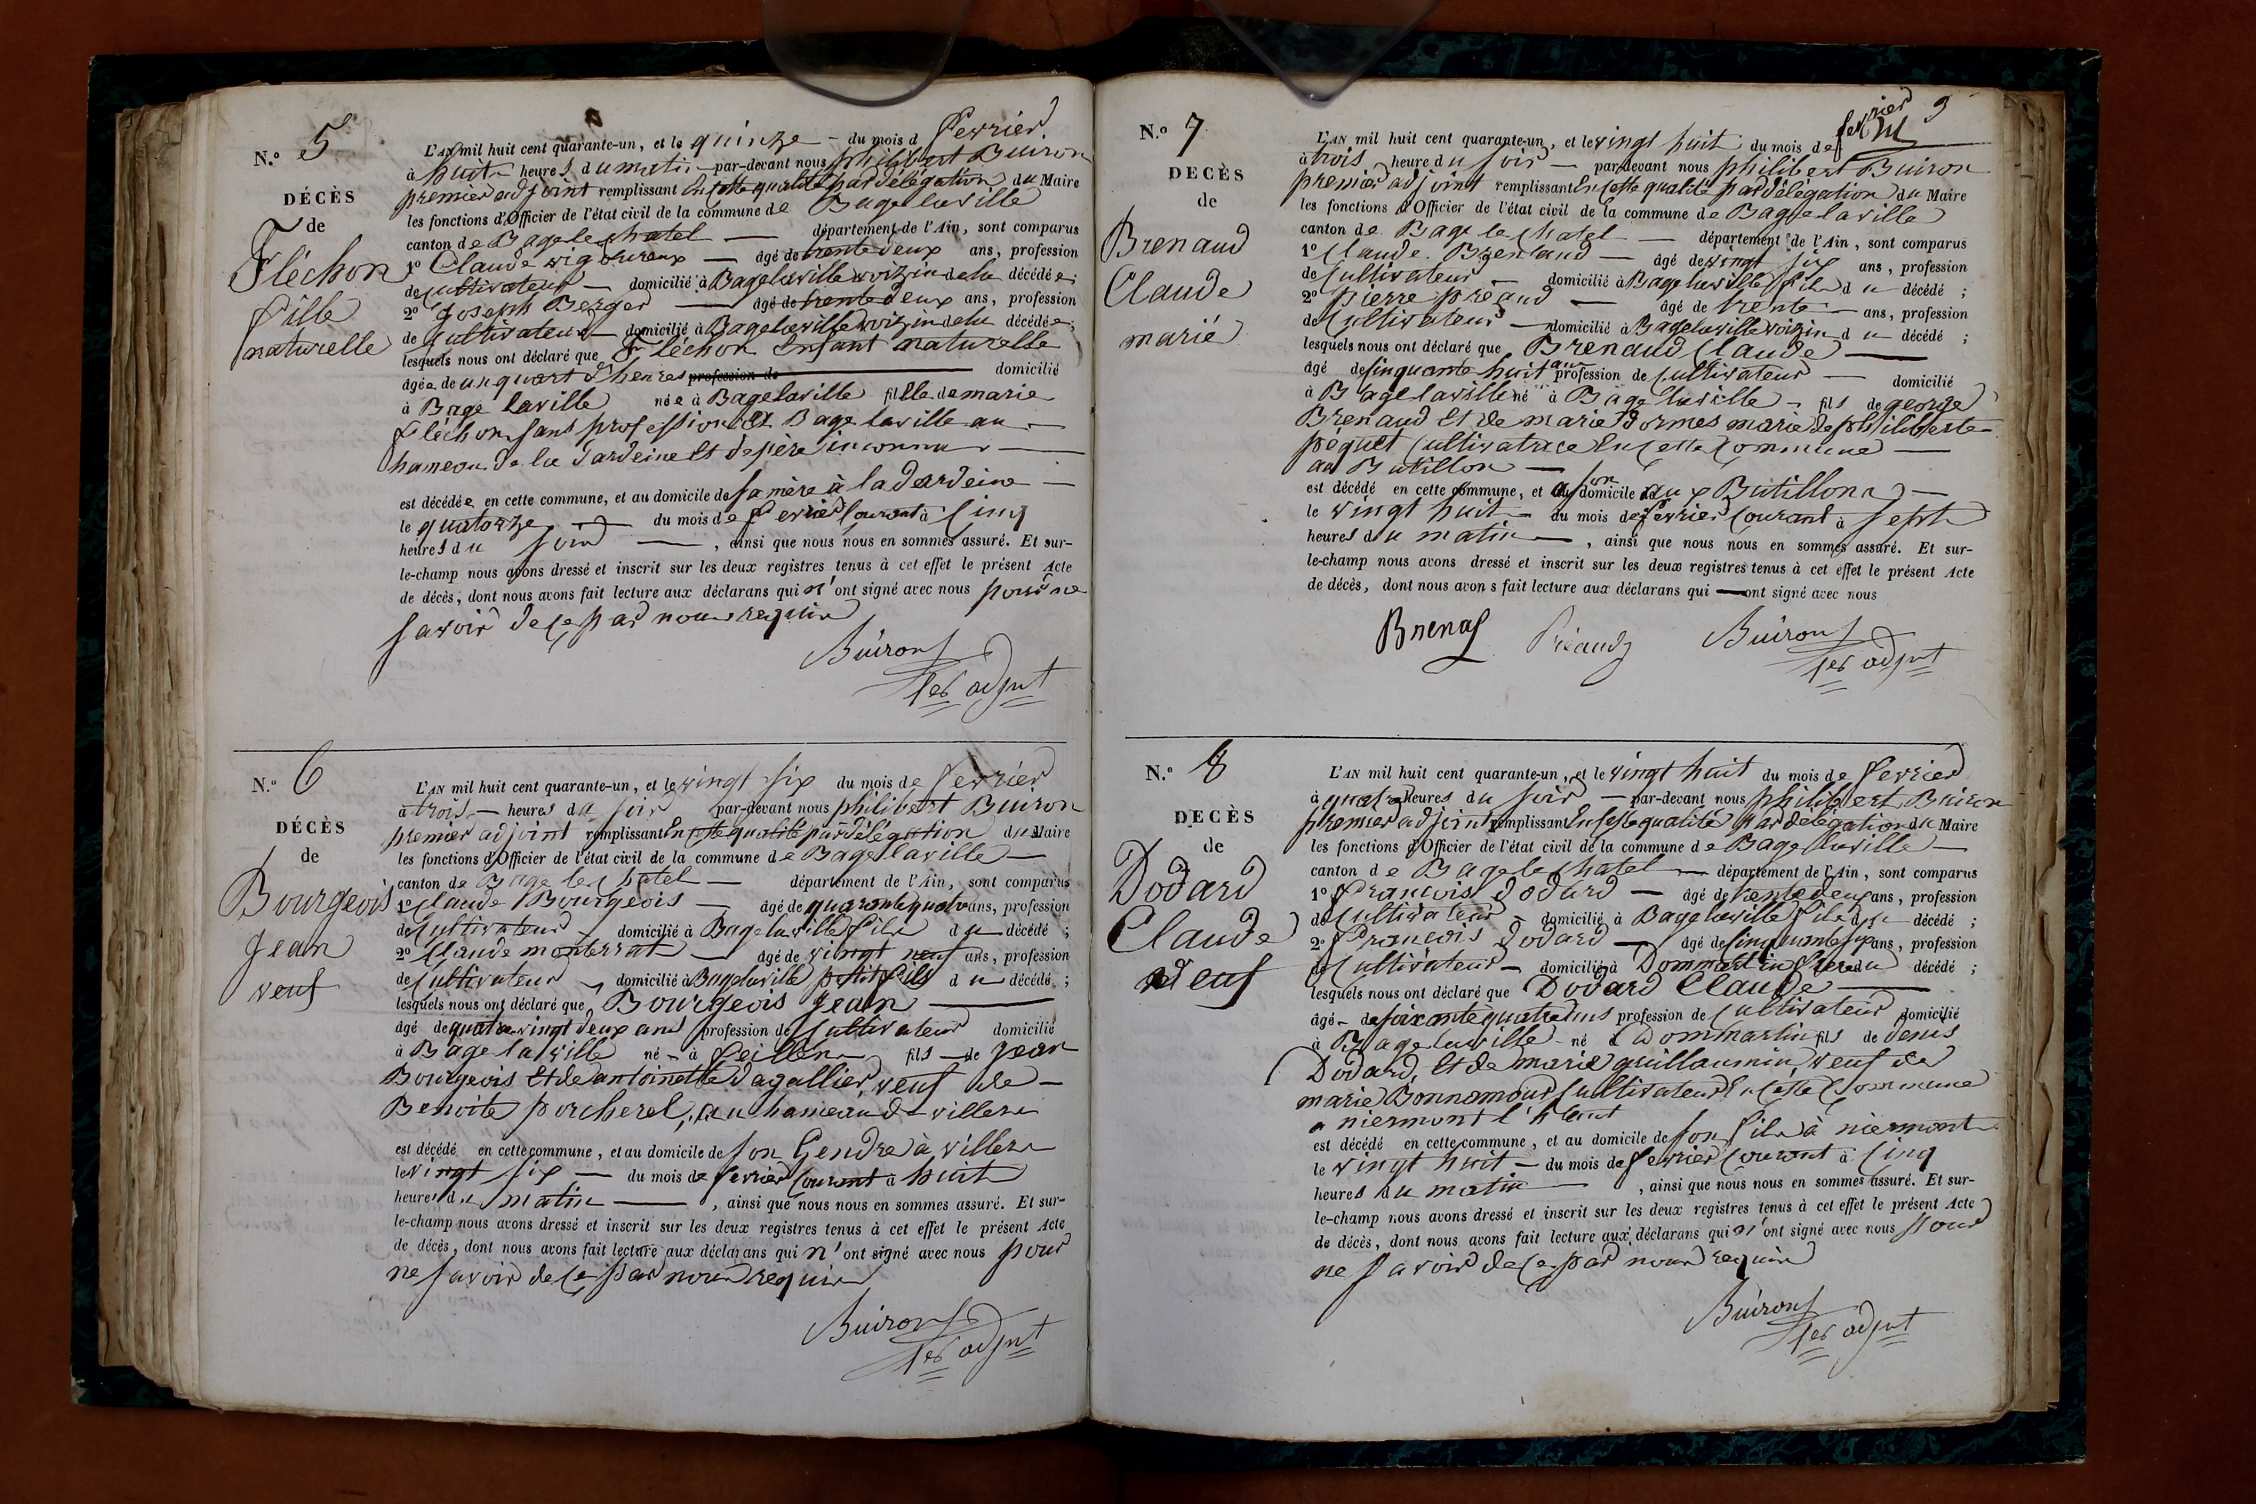 N.o 5
DÉCÈS
de
Fléchon
fille
naturelle
L'AN mil huit cent quarante-un, et le quinze - du mois d fevrier
à huit heures du matin par-devant nous philibert Buiron
premier adjoint remplissant En cette qualité par délégation du Maire
les fonctions d'Officier de l'état civil de la commune de Bagelaville
canton de Bage le chatel — département de l'Ain, sont comparus
1o Claude vigoureux — âgé de trente deux ans, profession
de cultivateur — domicilié à Bagelaville voizin de la décédée;
2o Joseph Berger — âgé de trente deux ans, profession
de cultivateur — domicilié à Bagelaville voizin de la décédée;
lesquels nous ont déclaré que Fléchon Enfant naturelle
âgée de un quart d'heures profession de domicilié
à Bage laville née à Bagelaville fille de marie
fléchon sans profession à Bage laville au
hameau de la dardeine Et de père inconnu
est décédée en cette commune, et au domicile de sa mère à la dardeine
le quatorze — du mois de fevrier courant à cinq
heures du soir — , ainsi que nous nous en sommes assuré. Et sur-
le-champ nous avons dressé et inscrit sur les deux registres tenus à cet effet le présent Acte
de décès, dont nous avons fait lecture aux déclarans qui n'ont signé avec nous pour ne
savoir de ce par nous requis
Buiron
1er adjnt
N.o 6
DÉCÈS
de
Bourgeois
Jean
veuf
L'AN mil huit cent quarante-un, et le vingt six du mois de fevrier
à trois — heures du soir par-devant nous philibert Buiron
premier adjoint remplissant En cette qualité par délégation du Maire
les fonctions d'Officier de l'état civil de la commune de Bagelaville —
canton de Bage le chatel — département de l'Ain, sont comparus
1o Claude Bourgeois — âgé de quarante quatre ans, profession
de cultivateur — domicilié à Bagelaville fils du décédé;
2o Claude monterrat — âgé de vingt neuf ans, profession
de cultivateur — domicilié à Bagelaville petit fils du décédé;
lesquels nous ont déclaré que Bourgeois Jean —
âgé de quatre vingt deux ans profession de cultivateur domicilié
à Bage laville né - à feillens fils - de Jean
Bourgeois Et de antoinette dagallier, veuf de -
Benoite porcherel, au hameau de villers
est décédé en cette commune, et au domicile de son Gendre à villers
le vingt six — du mois de fevrier courant à huit
heures du matin — , ainsi que nous nous en sommes assuré. Et sur-
le-champ nous avons dressé et inscrit sur les deux registres tenus à cet effet le présent Acte
de décès, dont nous avons fait lecture aux déclarans qui n'ont signé avec nous pour
ne savoir de ce par nous requis
Buiron
1er adjnt
N.o 7
DÉCÈS
de
Brenaud
Claude
marié
fevrier
L'AN mil huit cent quarante-un, et le vingt huit du mois de
à trois heure du soir — par-devant nous philibert Buiron
premier adjoint remplissant En cette qualité par délégation du Maire
les fonctions d'Officier de l'état civil de la commune de Bagelaville
canton de Bage le chatel — département de l'Ain, sont comparus
1o Claude Brenaud — âgé de vingt six ans, profession
de cultivateur — domicilié à Bagelaville fils du décédé;
2o pierre préaud — âgé de trente — ans, profession
de cultivateur — domicilié à Bagelaville voizin du décédé;
lesquels nous ont déclaré que Brenaud Claude —
âgé de cinquante huit ans profession de cultivateur — domicilié
à Bagelaville né à Bage laville - fils de george
Brenaud Et de marie dormes marié de philiberte
péquet cultivatrice En cette commune —
au Butillon —
est décédé en cette commune, et à son domicile aux Butillons —
le vingt huit — du mois de fevrier courant à sept
heures du matin —, ainsi que nous nous en sommes assuré. Et sur-
le-champ nous avons dressé et inscrit sur les deux registres tenus à cet effet le présent Acte
de décès, dont nous avons fait lecture aux déclarans qui — ont signé avec nous
Préaud Buiron
1er adjnt
N.o 8
DÉCÈS
de
Dodard
Claude
veuf
L'AN mil huit cent quarante-un, et le vingt huit du mois de fevrier
à quatre heures du soir — par-devant nous philibert Buiron
premier adjoint remplissant En cette qualité par délégation du Maire
les fonctions d'Officier de l'état civil de la commune de Bage laville —
canton de Bage le chatel — département de l'Ain, sont comparus
1o francois dodard — âgé de trente deux ans, profession
de cultivateur — domicilié à Bagelaville fils du décédé;
2o francois dodard — âgé de cinquante six ans, profession
de cultivateur — domicilié à Dommartin frere du décédé;
lesquels nous ont déclaré que Dodard Claude —
âgé - de soixante quatre ans profession de cultivateur domicilié
à Bagelaville - né à dommartin fils de denis
Dodard, Et de marie guillaumin, veuf de
marie Bonnamour cultivateur En cette Commune
a niermont
est décédé en cette commune, et au domicile de son fils à niermont
le vingt huit — du mois de fevrier courant à cinq
heures du matin — , ainsi que nous nous en sommes assuré. Et sur-
le-champ nous avons dressé et inscrit sur les deux registres tenus à cet effet le présent Acte
de décès, dont nous avons fait lecture aux déclarans qui n'ont signé avec nous pour
ne savoir de ce par nous requis
Buiron
1er adjnt